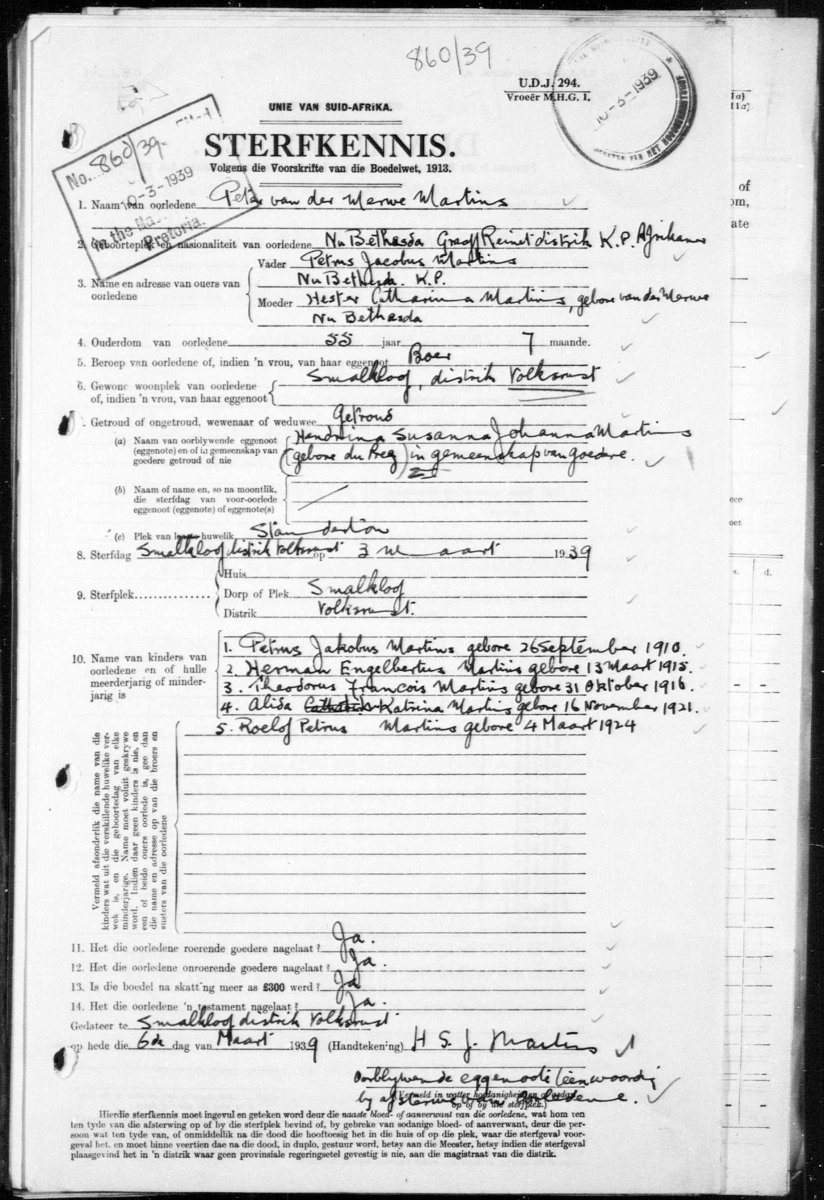 860/39
U.D.J. 294.
Vroeër M.H.G. I.
10-3-1939
MEESTER VAN HET HOOGGERECHTSHOF
UNIE VAN SUID-AFRIKA.
STERFKENNIS.
Volgens die Voorskrifte van die Boedelwet, 1913.
No. 860/39
10-3-1939
In the Ma
Pretoria.
1. Naam van oorledene Peter van der Merwe Martins
2. Geboorteplek en nasionaliteit van oorledene Nu Bethesda Graaff Reinet distrik K.P. Afrikaner
3. Name en adresse van ouers van oorledene
Vader Petrus Jacobus Martins
Nu Bethesda. K.P.
Moeder Hester Catharina Martins, gebore van der Merwe
Nu Bethesda
4. Ouderdom van oorledene 55 jaar 7 maande.
5. Beroep van oorledene of, indien 'n vrou, van haar eggenoot Boer
6. Gewone woonplek van oorledene Smalkloof, distrik Volksrust
of, indien 'n vrou, van haar eggenoot
7. Getroud of ongetroud, wewenaar of weduwee Getroud
(a) Naam van oorblywende eggenoot Hendrina Susanna Johanna Martins
(eggenote) en of in gemeenskap van (gebore du Preez) in gemeenskap van goedere.
goedere getroud of nie
(b) Naam of name en, so na moontlik,
die sterfdag van voor-oorlede
eggenoot (eggenote) of eggenote(s)
(c) Plek van huwelik, Standerton
8. Sterfdag Smalkloof distrik Volksrust op 3 Maart 1939
9. Sterfplek
Huis
Dorp of Plek Smalkloof
Distrik Volksrust.
10. Name van kinders van
oorledene en of hulle
meerderjarig of minder-
jarig is
1. Petrus Jakobus Martins gebore 26 September 1910.
2. Herman Engelbertus Martins gebore 13 Maart 1915.
3. Theodorus Francois Martins gebore 31 Oktober 1916.
4. Alida Katrina Martins gebore 16 November 1921.
5. Roelof Petrus Martins gebore 4 Maart 1924
Vermeld afsonderlik die name van die
kinders wat uit die verskillende huwelike ver-
wek is, en die geboortedag van elke
minderjarige. Name moet voluit geskrywe
word. Indien daar geen kinders is nie, en
een of beide ouers oorlede is, gee dan
die name en adresse op van die broers en
susters van die oorledene
11. Het die oorledene roerende goedere nagelaat? Ja.
12. Het die oorledene onroerende goedere nagelaat? Ja.
13. Is die boedel na skatt'ng meer as £300 werd? Ja
14. Het die oorledene 'n testament nagelaat? Ja.
Gedateer te Smalkloof distrik Volksrust
op hede die 6de dag van Maart 1939 (Handtekening) H S. J. Martins
Oorblywende eggenote teenwoordig
(Vermeld in watter hoedanigheid en of dit
by afsterwe van oorledene.
op of by die sterfplek.)
Hierdie sterfkennis moet ingevul en geteken word deur die naaste bloed- of aanverwant van die oorledene, wat hom ten
ten tyde van die afsterwing op of by die sterfplek bevind of, by gebreke van sodanige bloed- of aanverwant, deur die per-
soon wat ten tyde van, of onmiddellik na die dood die hooftoesig het in die huis of op die plek, waar die sterfgeval voor-
geval het, en moet binne veertien dae na die dood, in duplo, gestuur word, hetsy aan die Meester, hetsy indien die sterfgeval
plaasgevind het in 'n distrik waar geen provinsiale regeringsetel gevestig is nie, aan die magistraat van die distrik.